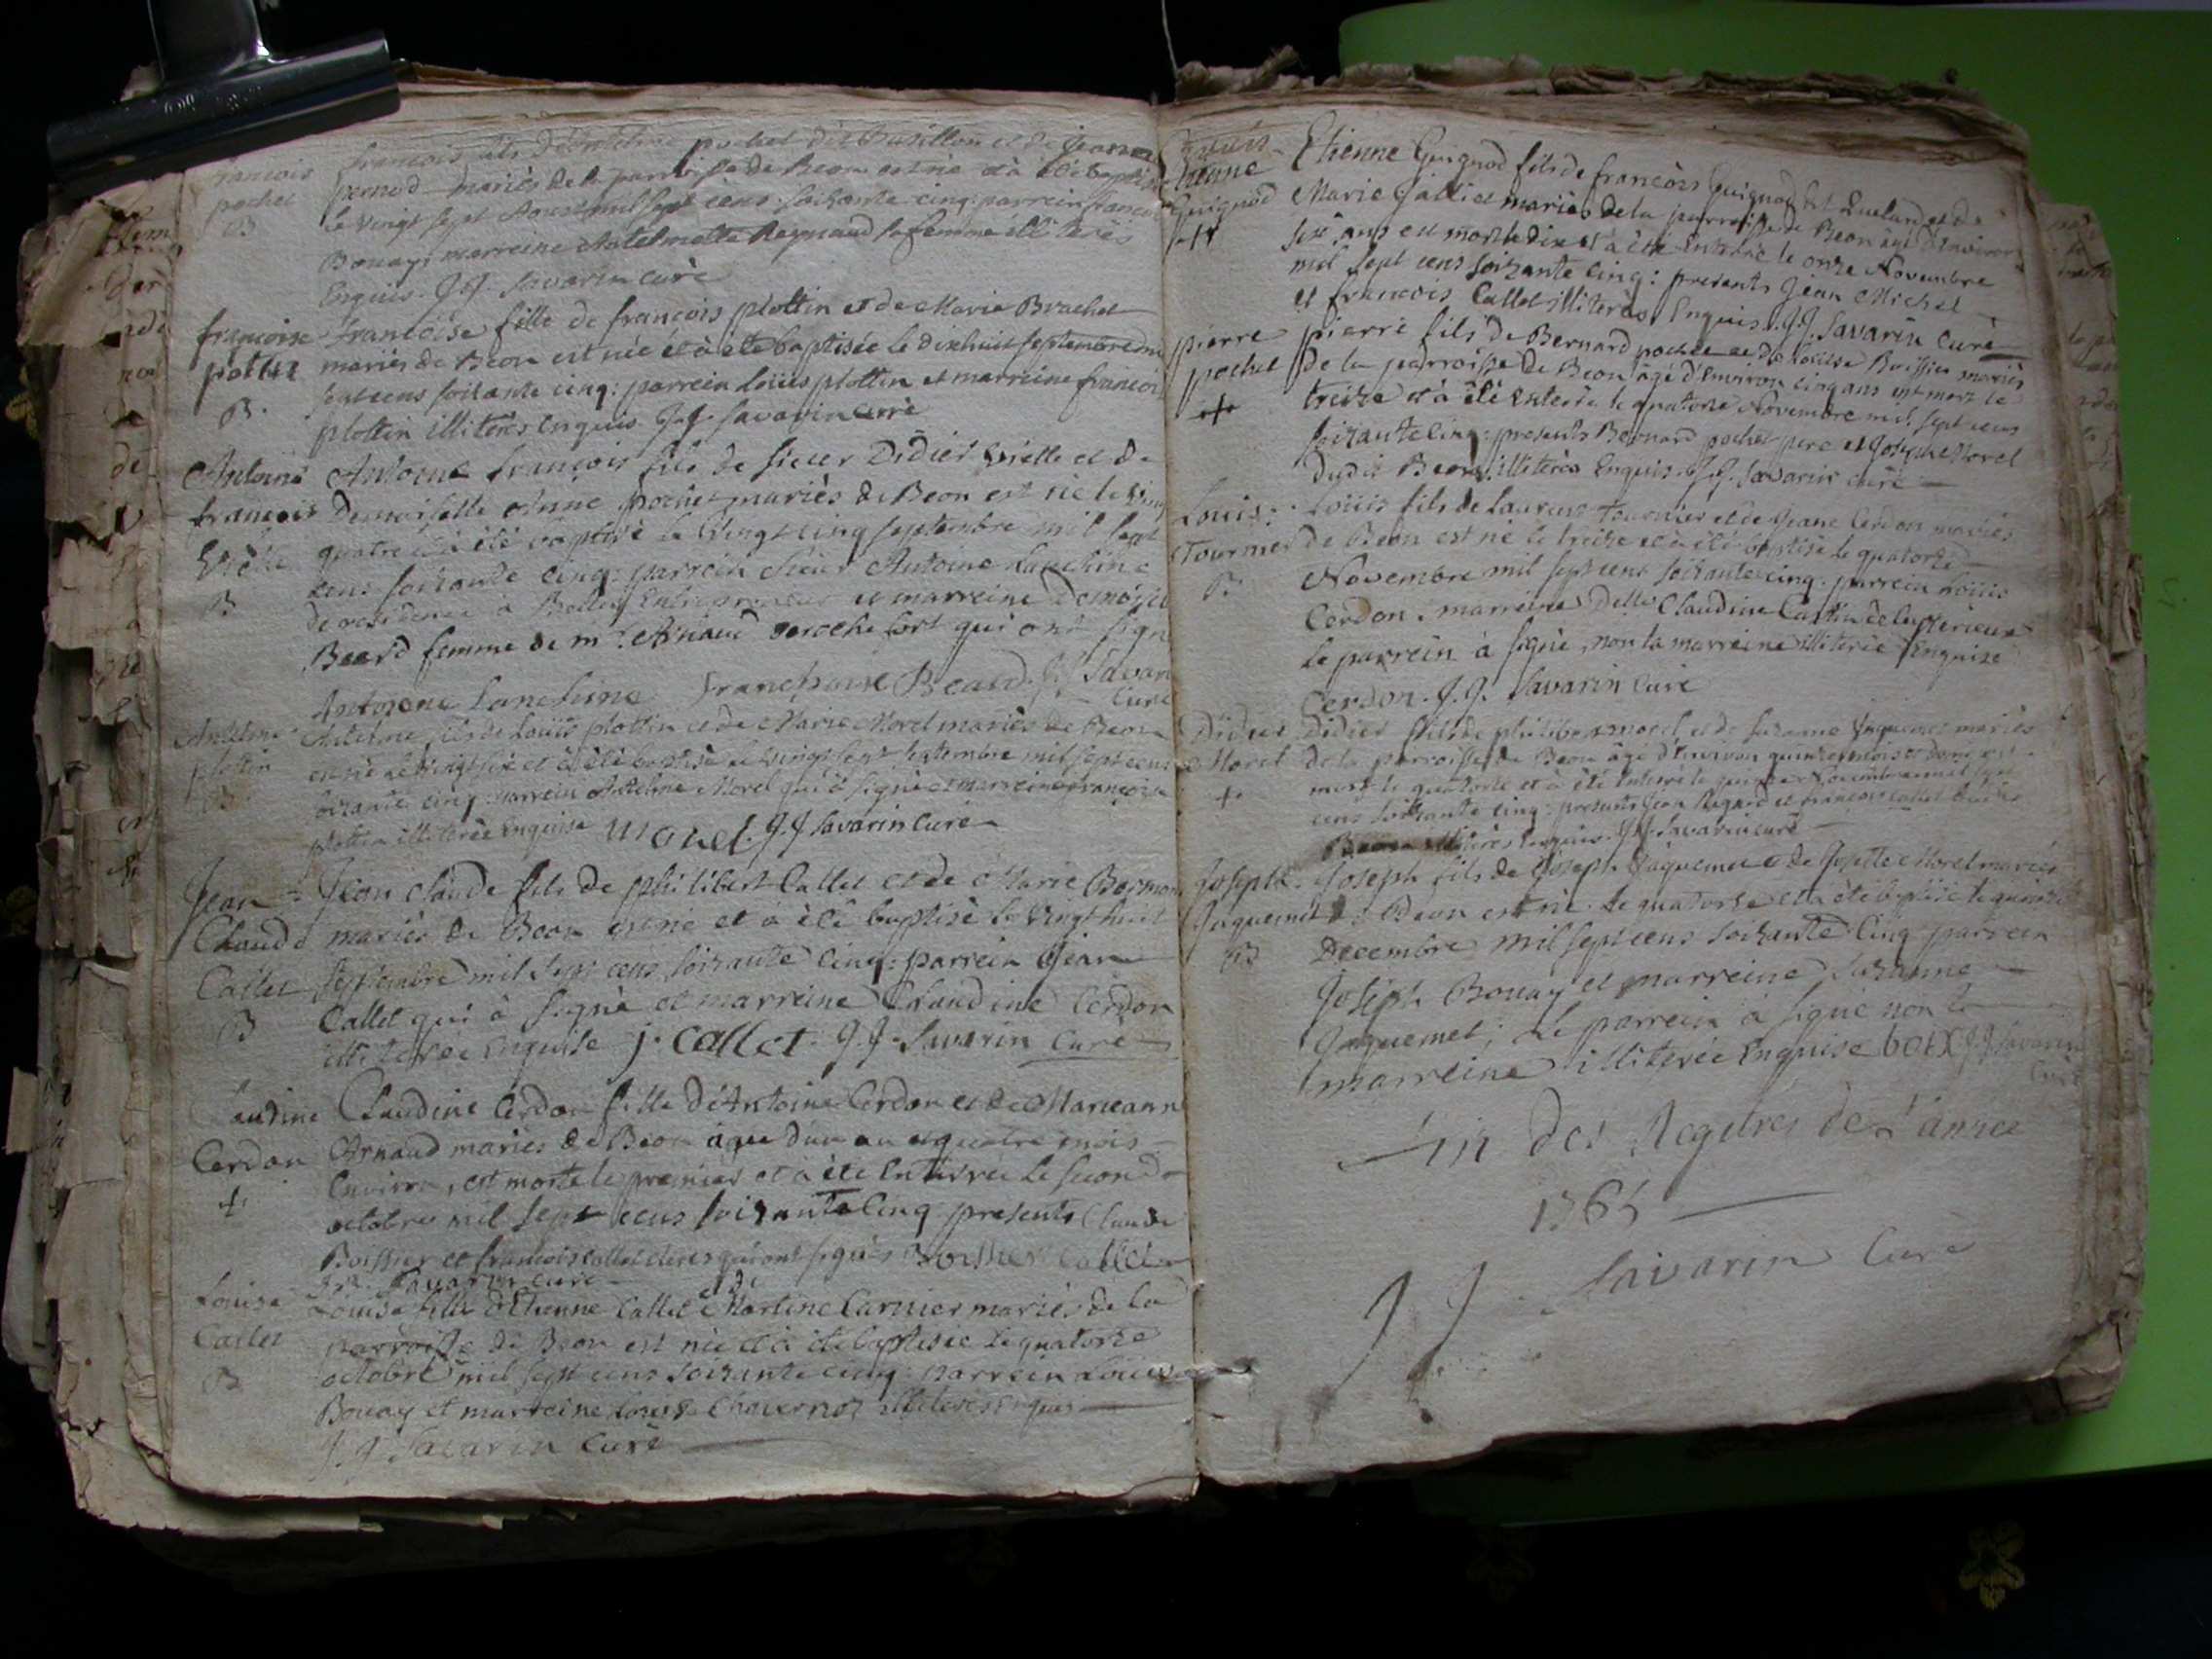 françois fils d'Antelme pochet dit Basillon et de jeanne
francois pernod mariés de la parroisse de Beon est né et à été baptisé
pochet le vingt sept Aoust mil sept cens soixante cinq: parrein francois
B Bouay, marreine Antelmette Reynaud sa femme illiterés
Enquis. J.J. Savarin curé
françoise françoise fille de françois plottin et de Marie Brachet
mariés de Beon est née et à eté baptisée le dixhuit septembre mil
sept cens soixante cinq: parrein Loüis plottin et marreine francoise
B. plottin illiterés Enquis J.J. Savarin curé
Antoine Antoine françois fils de sieur Didier et de
françois Demoiselle Anne pochet mariés de Beon est né le vingt
quatre et à été baptisé le vingt cinq septembre mil sept
cens soixante cinq: parrein sieur Antoine Lanchine
B de residence à Belley Entrepreneur et marreine Demoiselle
Beard femme de mr. Arnaud qui ont signé
Antoiene Lanchine franchoise Beard. J.J. Savarin
Curé
Antelme Antelme fils de Loüis plottin et de Marie Morel mariés de Beon
plottin est né le vingt six et à été baptisé le vingt sept septembre mil sept cens
B. soixante cinq: parrein Antelme Morel qui à signé et marreine françoise
plottin illiterée Enquise morel. J.J. Savarin Curé
Jean = Jean claude fils de philibert Callet et de Marie Bermon
Claude mariés de Beon est né et à été baptisé le vingt huit
Callet septembre mil sept cens soixante cinq: parrein Jean
B Callet qui à signé et marreine Claudine Cerdon
illiterée Enquise j. Callet. J.J. Savarin Curé
Claudine Claudine Cerdon fille d'Antoine Cerdon et de Marieanne
Cerdon Arnaud mariés de Beon àgée d'un an et quatre mois
+ Environ, est morte le premier et à été Enterrée le second
octobre mil sept cens soixante Cinq presents Claude
Boissier et francois callet qui ont signés Boissier Callet
J.J. Savarin curé
Louise Louise fille d'Etienne Callet et de Martine Carrier mariés de la
Callet parroisse de Beon est née et à été baptisée le quatorze
B octobre mil sept cens soixante cinq: parrein Loüis
Bouay et marreine Louise Chavernoz illiterés Enquis
J.J. Savarin Curé
Etienne Etienne Guignod fils de francois Guignod dit et de
Guignod Marie Gallié mariés de la parroisse de Beon âgé d'Environ
six ans est mort le dix et à été Enterré le onze Novembre
mil sept cens soixante cinq: presents Jean Michel
et francois Callet illiterés Enquis. J.J. Savarin Curé
pierre pierre fils de Bernard pochet et de Louise Boissier mariés
pochet de la parroisse de Beon âgé d'Environ cinq ans est mort le
+ treize et à été Enterré le quatorze Novembre mil sept cens
soixante cinq: presents Bernard pochet pere et Joseph Morel
dudit Beon illiterés Enquis. J.J. Savarin curé
Louis: Loüis fils de Laurent Tournier et de Jeane Cerdon mariés
Tournier de Beon est né le treize et à été baptisé le quatorze
B. Novembre mil sept cens soixante cinq. parrein Loüis
Cerdon. marreine Delle Claudine
le parrein à signé, non la marreine illiterée Enquise
Cerdon. J.J. Savarin Curé
Didier Didier fils de philibert morel et de Suzanne Juquemet mariés
Morel de la parroisse de Beon âgé d'Environ quinze mois et demi est
+ mort le quatorze et à été Enterré le quinze Novembre mil sept
cens soixante cinq: presents Jean Regard et francois Callet dudit
Beon illiterés Enquis. J.J. Savarin curé
Joseph. Joseph fils de Joseph Juquemet et de Josette Morel mariés
Juquemet de Beon est né le quatorze et à été baptisé le quinze
B Decembre mil sept cens soixante Cinq parrein
Joseph Bouay et marreine Suzanne
Juquemet; le parrein à signé non la
marreine illiterée Enquise boix J.J. Savarin
Curé
Fin des Registres de L'année
1765
J J Savarin Curé